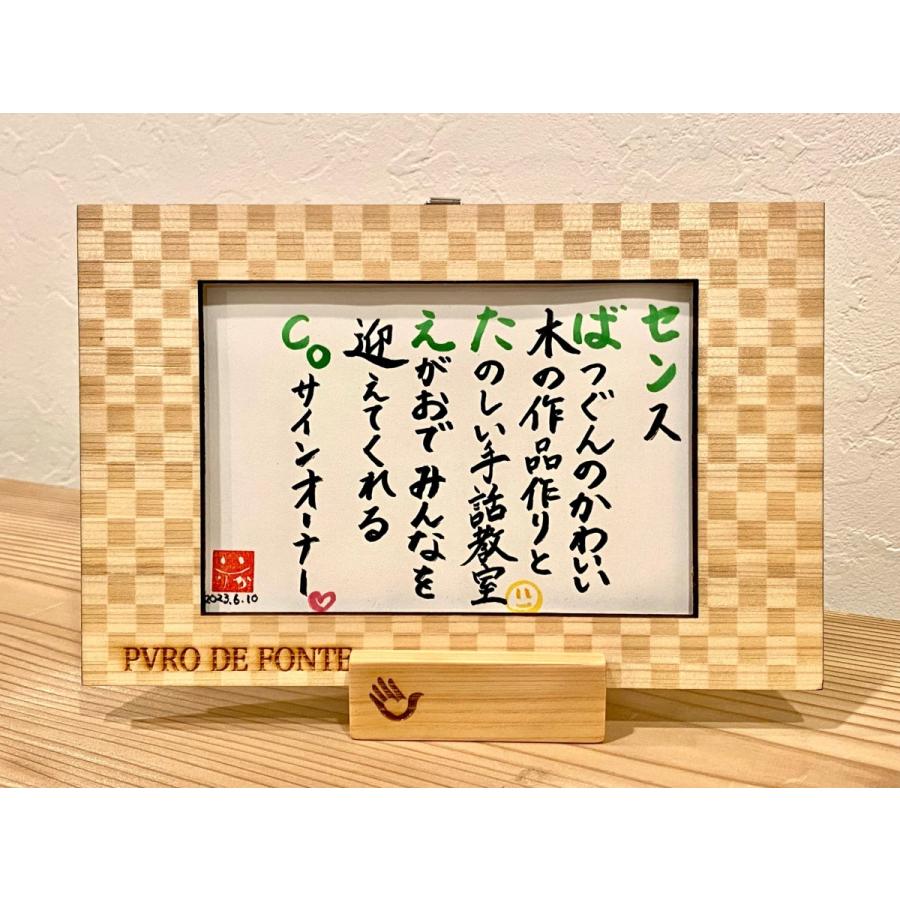 センス
ばつぐんのかわいい
木の作品作りと
たのしい手話教室
えがおでみんなを
迎えてくれる
C。サインオーナー
りか
2023.6.10
PVRO DE FONTE